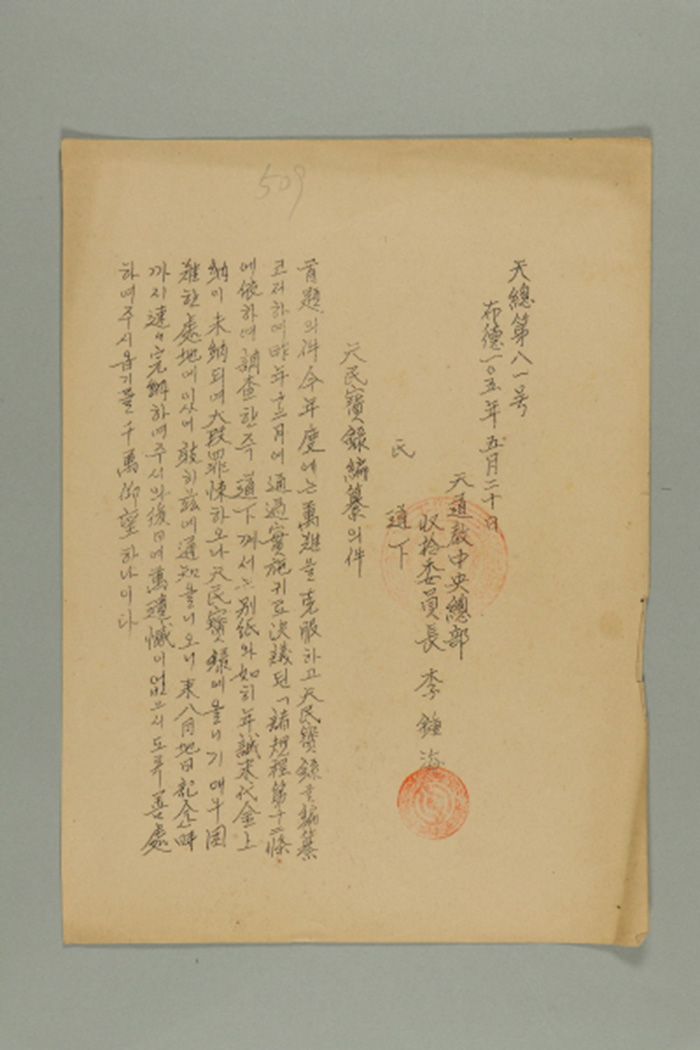 509
天總第八一号
布德一〇五年 五月二十日
天道敎中央總部
収拾委員長 李鍾海
氏
道下
天民寶錄編纂의件
首題의件今年度에는萬難을克服하고天民寶錄을編纂
코저하며昨年十二月에通過實施키로決議된「諸規程第十二條
에依하여調査한즉 道下께서는別紙와如히年誠米代金上
納이未納되여大段罪悚하오나天民寶錄에올니기매우困
難한處地에이싸여玆히玆에通知올니오니來八月地日記念時
까지速々完納하여주시와後日에萬遺憾이없으시도록善處
하여주시옵기를千萬仰望하나이다